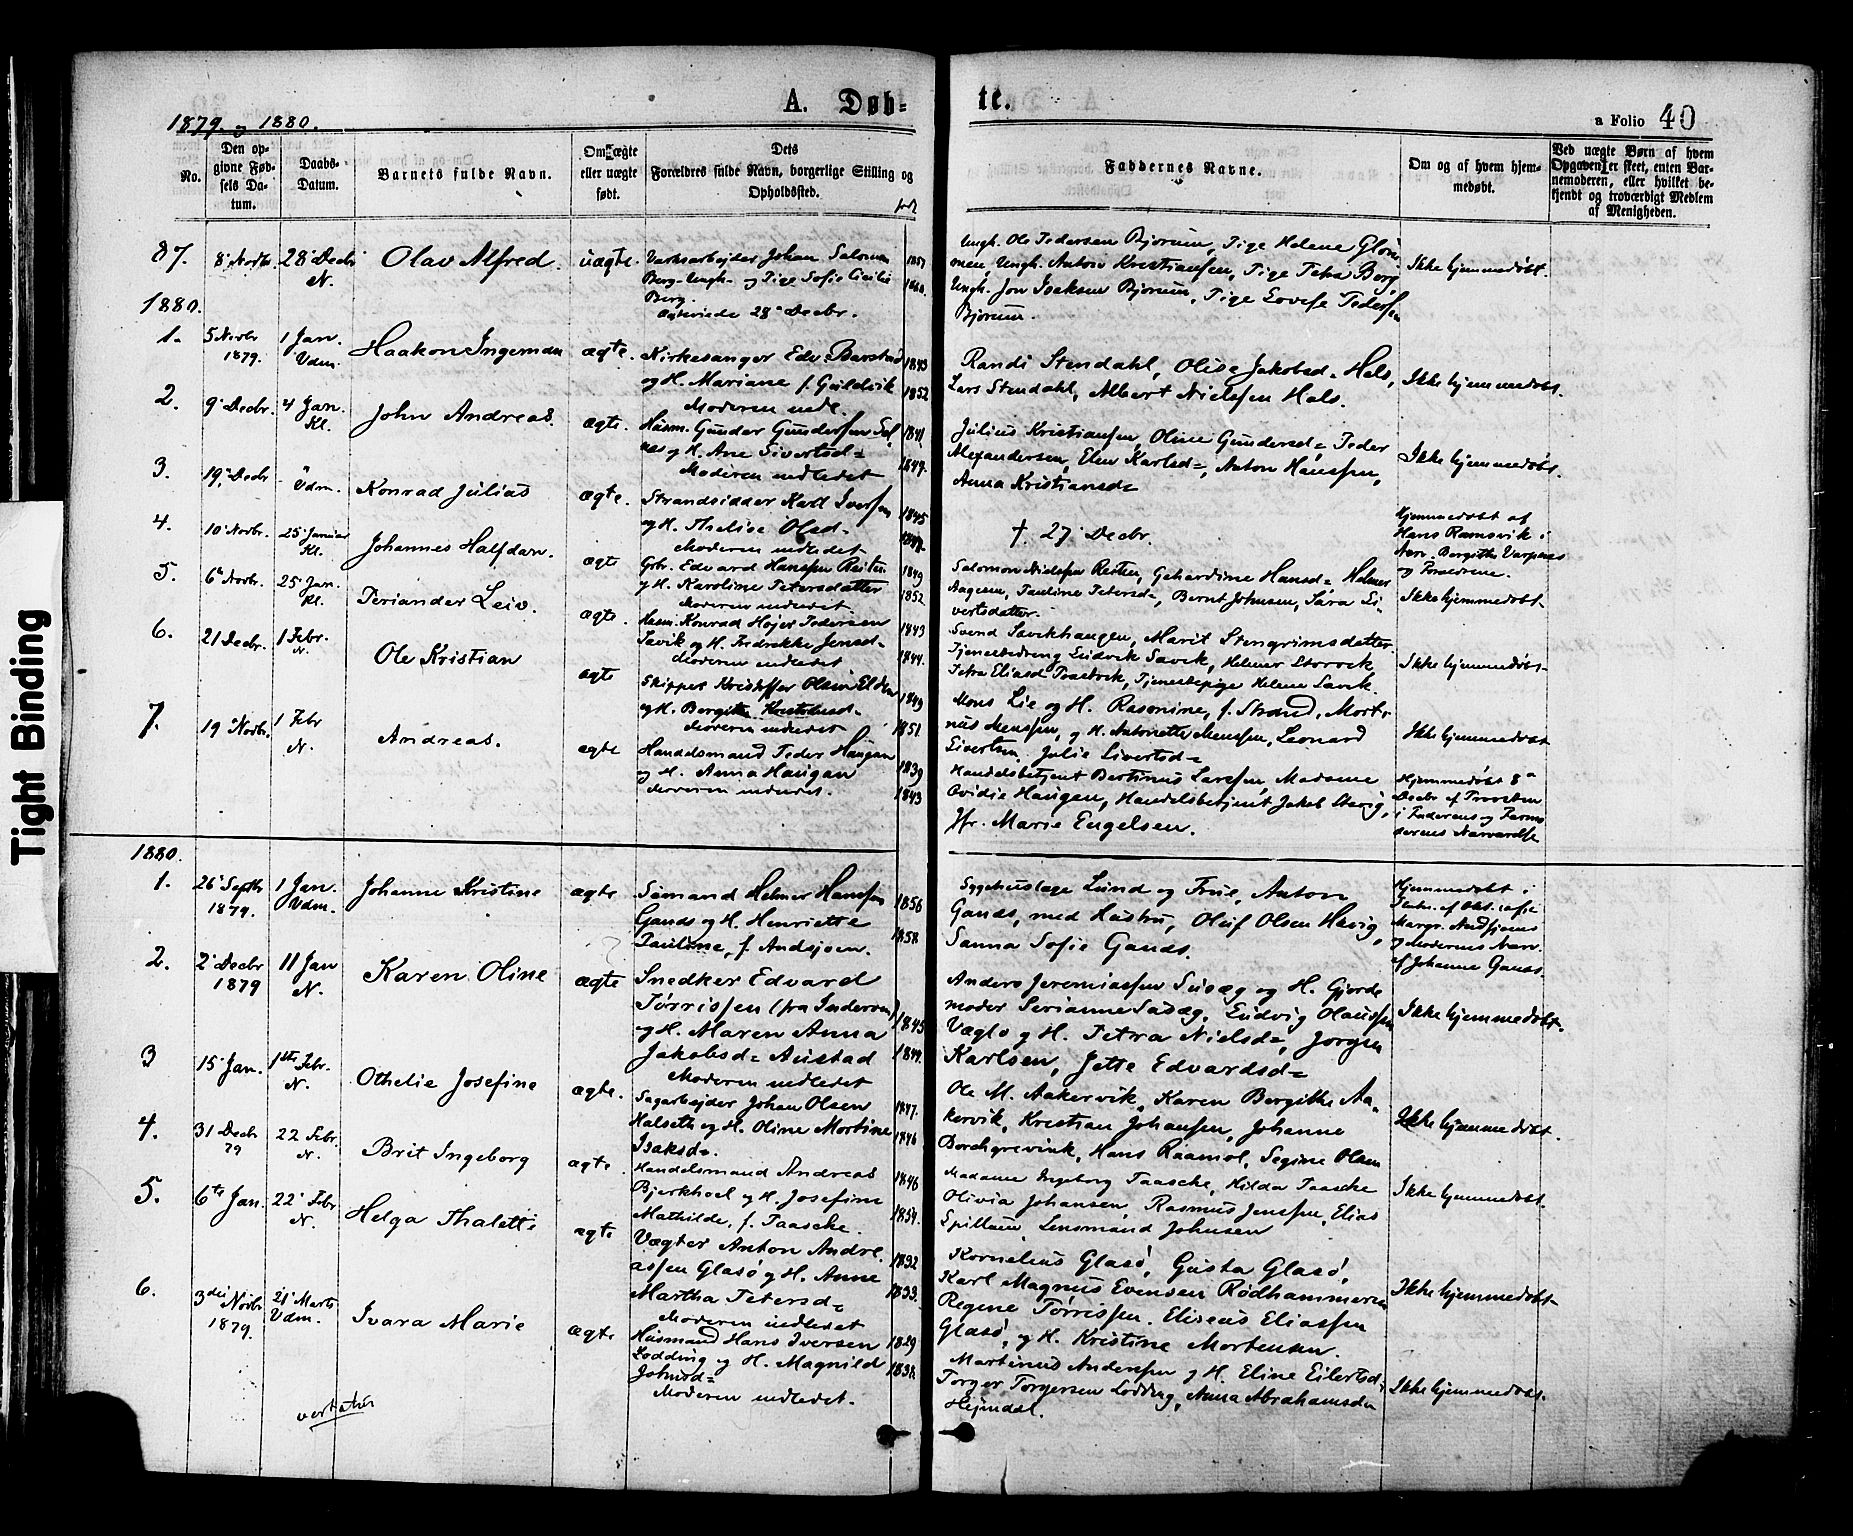 Tight Binding
1879. og 1880.
A. Døb-
te.
a Folio 40
No.
Den op-
givne Fød-
sels Da-
tum.
Daabs-
Datum.
Barnets fulde Navn.
Om ægte
eller uægte
født.
Dets
Forældres fulde Navn, borgerlige Stilling og
Opholdssted.
Faddernes Navne.
Om og af hvem hjem-
medøbt.
Ved uægte Børn af hvem
Opgaven er skeet, enten Bar-
nemoderen, eller hvilket be-
kjendt og troværdigt Medlem
af Menigheden.
87. 8 Novbr. 28 Decbr N. Olav Alfred. uægte.
Johan Salomon
Berg Ungk. og Pige Sofie
Berg.
28 Decbr.
1860.
Ungk. Ole Pedersen Bjørum, Pige Helene
Ungk. Anton Kristiansen, Pige Petra Berg,
Ungk. Jon Isaksen Bjørum, Pige Lovise Peders
Bjørum.
Ikke hjemmedøbt.
1880.
1. 5 Novbr 1879. 1 Jan. Vdm. Haakon Ingemar ægte.
Kirkesanger Edv. Barstad
og H. Mariane f. Guldvik
Moderen indl.
1843
1852
Randi Stendahl, Olise Jakobsd. Hals,
Lars Stendahl, Albert Nielssen Hals.
Ikke hjemmedøbt.
2. 9 Decbr. 4 Jan. Kl. John Andreas. ægte.
Husm. Gunder Gundersen Sel
nes og H. Ane Sivertsd=
Moderen indledet
1841
1849.
Julius Kristiansen, Oline Gundersd=, Peder
Alexandersen, Elen Karlsd=, Anton Hanssen,
Anna Kristiansd=
Ikke hjemmedøbt.
3. 19 Decbr - " Vdm. Konrad Julius ægte.
Strandsidder Karl Iversen
og H. Olsd=
Moderen indledet
1845
† 27 Decbr.
Hjemmedøbt af
Hans Ramsvik i
Nærv. Bergithe
og Forældrene.
4. 10 Novbr. 25 Januar Kl. Johannes Halfdan. ægte
Gbr. Edvard Hanssen Reiten
og H. Karoline Petersdatter
Moderen indledet.
1849
1852
Salomon Nielssen Reiten, Gehardine Hansd= Helmer
Aagesen, Pauline Petersd=, Bernt Johnsen, Sara Si-
vertsdatter.
Ikke hjemmedøbt.
5. 6 Novbr. 25 Jan. Kl. Periander Leiv. ægte.
Husm. Konrad Højer Pedersen
Savik og H. Fredrikke Jensd=
Moderen indledet
1843
1844.
Svend Savikhaugen, Marit Stengrimsdatter
Tjenestedreng Ludvik Savik, Helmer Storvik
Petra Eliasd= Tjenestepige Helene Savik.
Ikke hjemmedøbt.
6. 21 Decbr. 1 Febr. N. Ole Kristian ægte
Skipper Kristoffer Olsen Elden
og H. Bergithe
Moderen indledet
1849
1851
Mons Lie og H. Rasmine, f. Strand, Mort-
nus Menssen, og H. Antonette Menssen, Leonard
Sivertsen, Julie Sivertsd=
Ikke hjemmedøbt
7. 19 Novbr. 1 Febr N. Andreas. ægte
Handelsmand Peder Haugan
og H. Anna Haugan
Moderen indledet.
1839
1843
Handelsbetjent Bertinus Larssen, Madame
Ovidie Haugen, Handelsbetjent Jakob Stavig,
Jfr. Marie Engelsen.
Hjemmedøbt 8
Decbr af Provsten
i Faderens og Farmo
derens Nærværelse
1880.
1. 26 Septbr 1879. 1 Jan. Vdm. Johanne Kristine ægte
Sømand Helmer Hanssen
Gands og H. Henriette
Pauline, f. Andsjøen.
1856
1858
Sygehuslæge Lund og Frue, Anton
Gands, med Hustru, Oluf Olsen Høvig,
Sanna Sofie Gands.
Hjemmedøbt i
Margr. Andsjøens
og Moderens Nærv.
af Johanne Gands.
2. 2 Decbr 1879 11 Jan N. Karen Oline ægte
Snedker Edvard
Tørrissen (fra Inderøen)
og H. Maren Anna
Jakobsd= Austad
Moderen indledet
1845
1844.
Anders Jeremiassen Susæg og H. Gjorde
moder Serianne Susæg, Ludvig Olaussen
Væglo og H. Petra Nielsd=, Jørgen
Karlsen, Jette Edvardsd=
Ikke hjemmedøbt.
3 15 Jan. 1ste Febr. N. Othelie Josefine ægte.
Sagarbejder Johan Olsen
Halseth og H. Oline Mortine
Isaksd=.
1847.
1846
Ole M. Aakervik, Karen Bergithe Aa-
kervik, Kristian Johansen, Johanne
Borchgrevink, Hans Raamol, Segine Olsen
Ikke hjemmedøbt.
4. 31 Decbr 79 22 Febr. N. Brit Ingeborg ægte.
Handelsmand Andreas
Bjerkhoel og H. Josefine
Mathilde, f. Paasche.
1846
1854.
Madame Ingeborg Paasche, Hilda Paasche
Olivia Johansen, Rasmus Jenssen, Elias
Spillum, Lensmand Johnsen
Ikke hjemmedøbt.
5. 6te Jan. 22 Febr N. Helga Thalette ægte
Vægter Anton Andre
assen Glasø og H. Anne
Martha Petersd=
Moderen indledet
1832
1833.
Kornelius Glasø, Gusta Glasø,
Karl Magnus Evensen Rødhammeren
Regine Tørrissen. Eliseus Eliassen
Glasø, og H. Kristine Mortensen.
Ikke hjemmedøbt
6. 3die Novbr 1879. 21 Marts Vdm. Ivara Marie ægte
Husmand Hans Iversen
Lødding og H. Magnild
Johnsd=
Moderen indledet.
1829
1838
Martinus Anderssen og H. Eline Eilertsd=
Torger Torgersen Lødding, Anna Abrahamsda
Hejmdal.
Ikke hjemmedøbt.